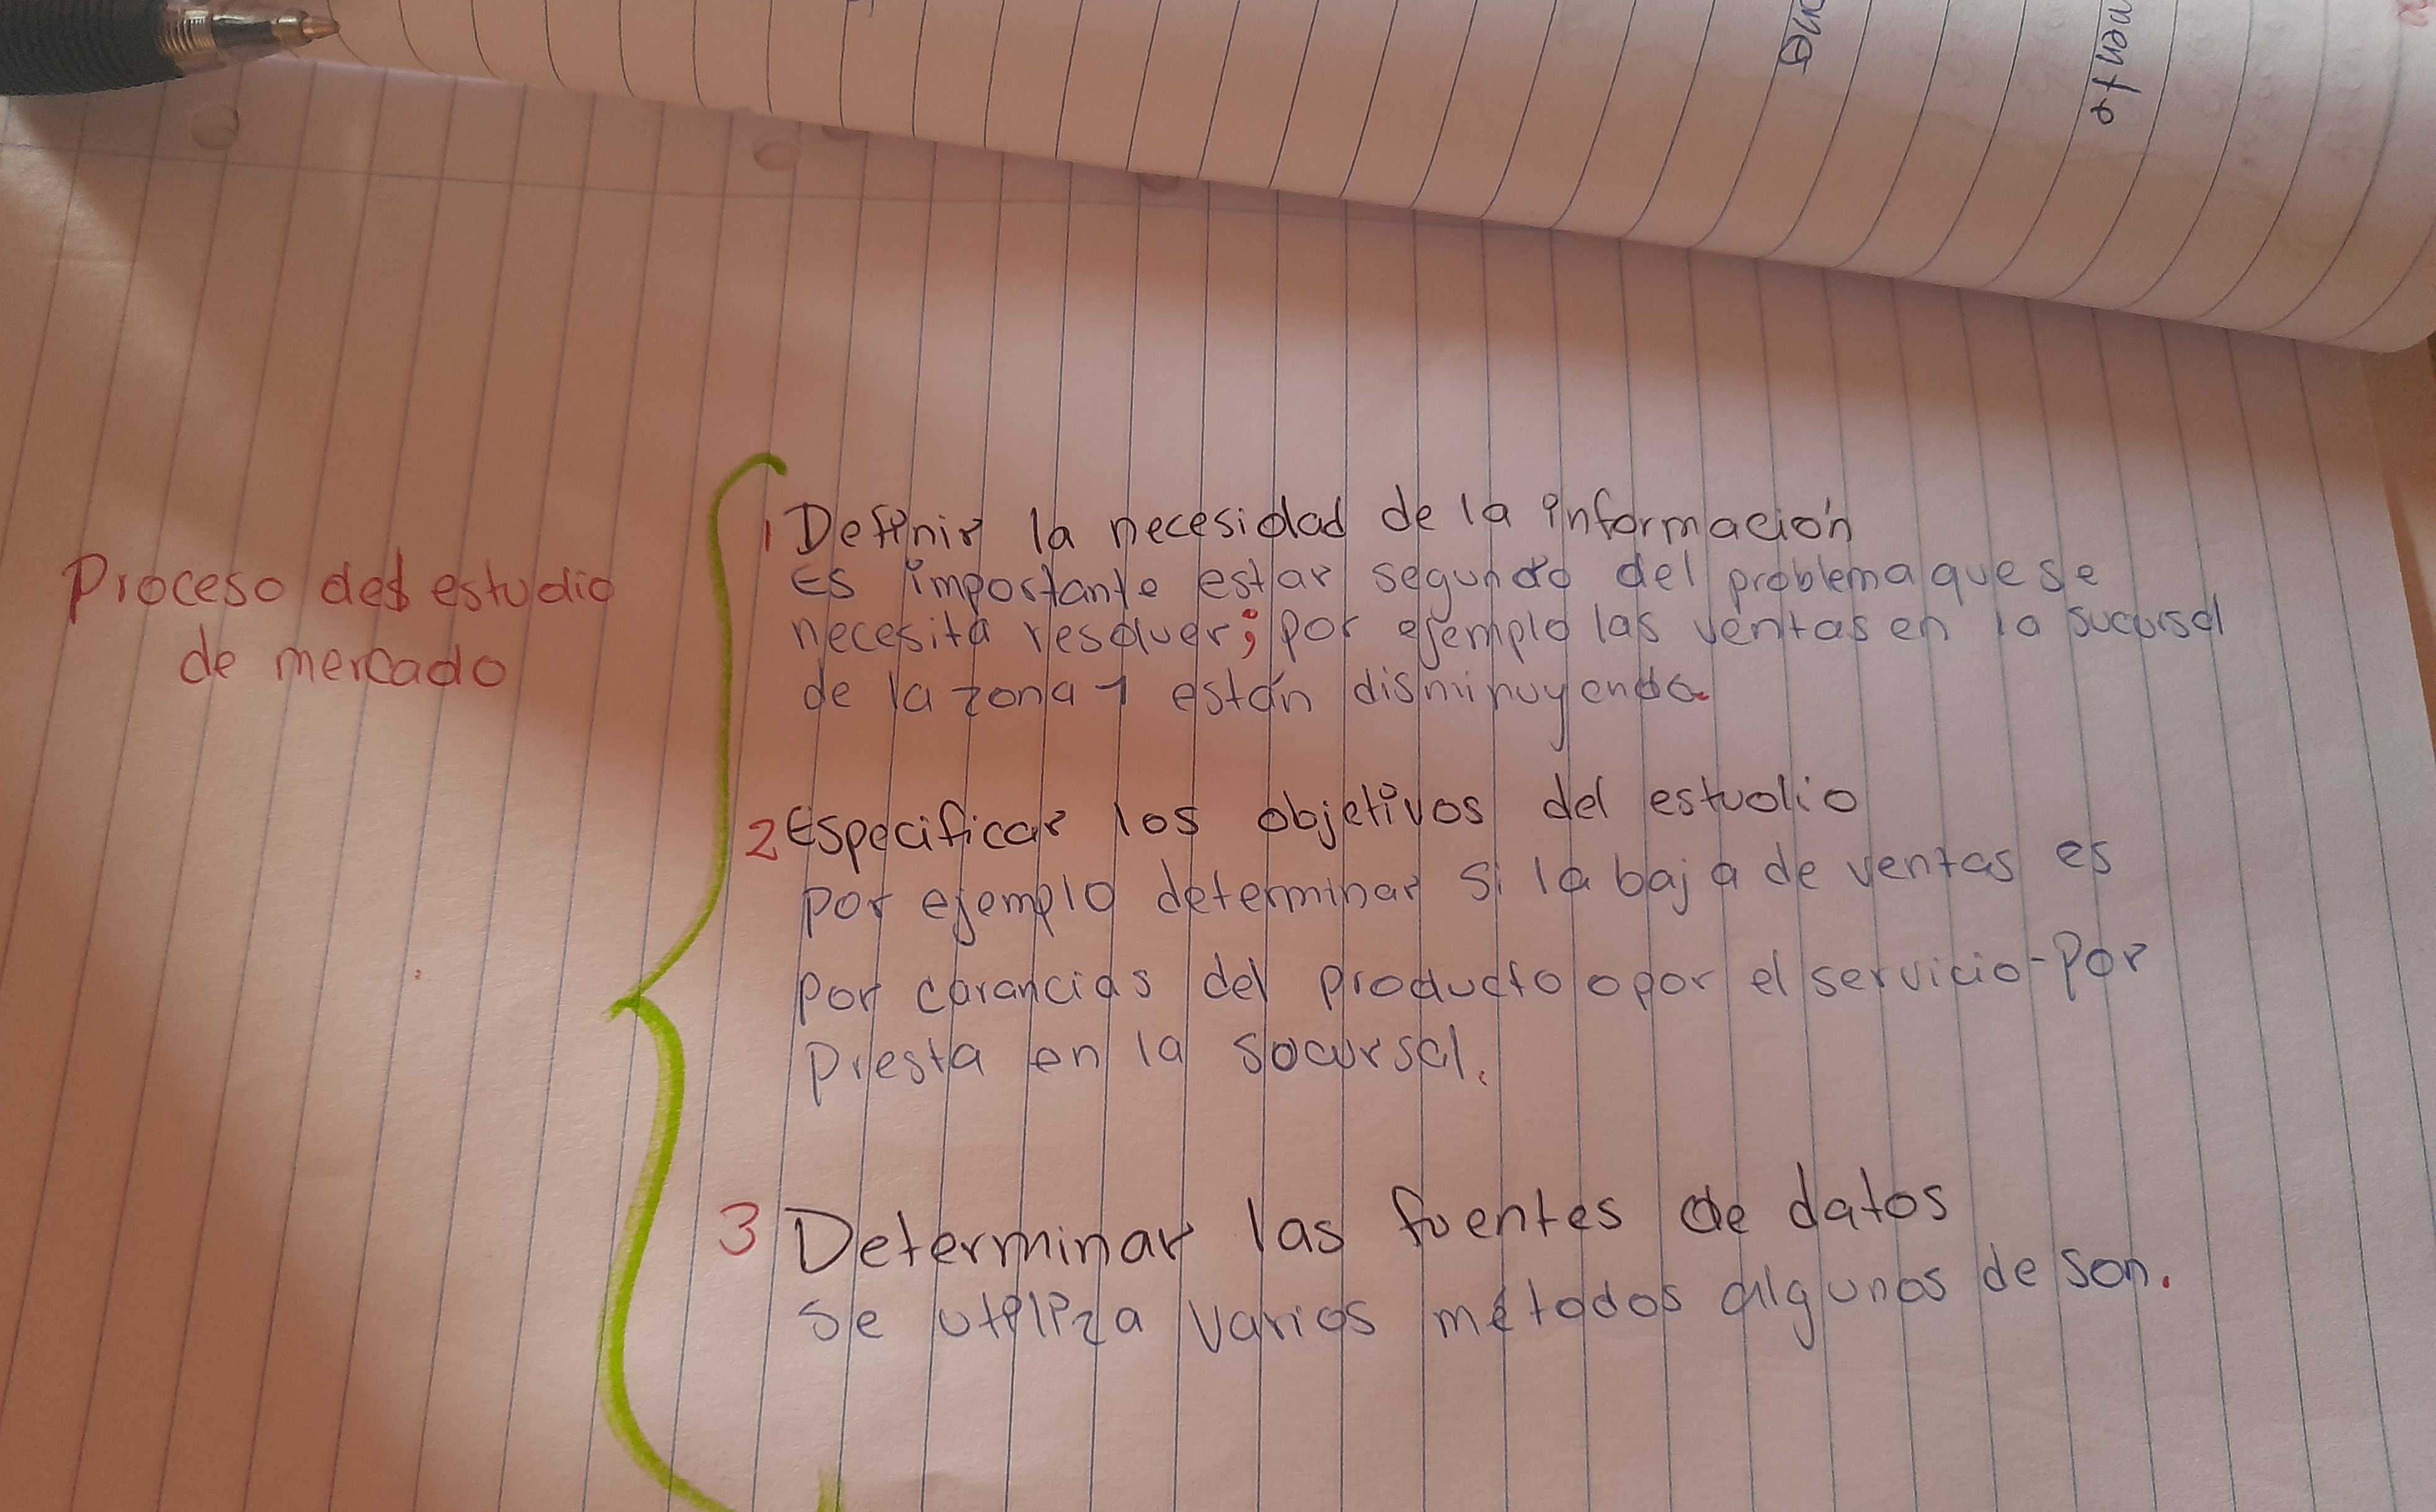 Proceso del estudio
de mercado
1 Definir la necesidad de la información
Es importante estar segundo del problema que se
necesita resolver; por ejemplo las ventas en la sucursal
de la zona 1 están disminuyendo.
2 Especificar los objetivos del estudio
por ejemplo determinar si la baja de ventas es
por carancias del producto o por el servicio - por
presta en la socursal.
3 Determinar las fuentes de datos
se utiliza varios métodos algunos de son.